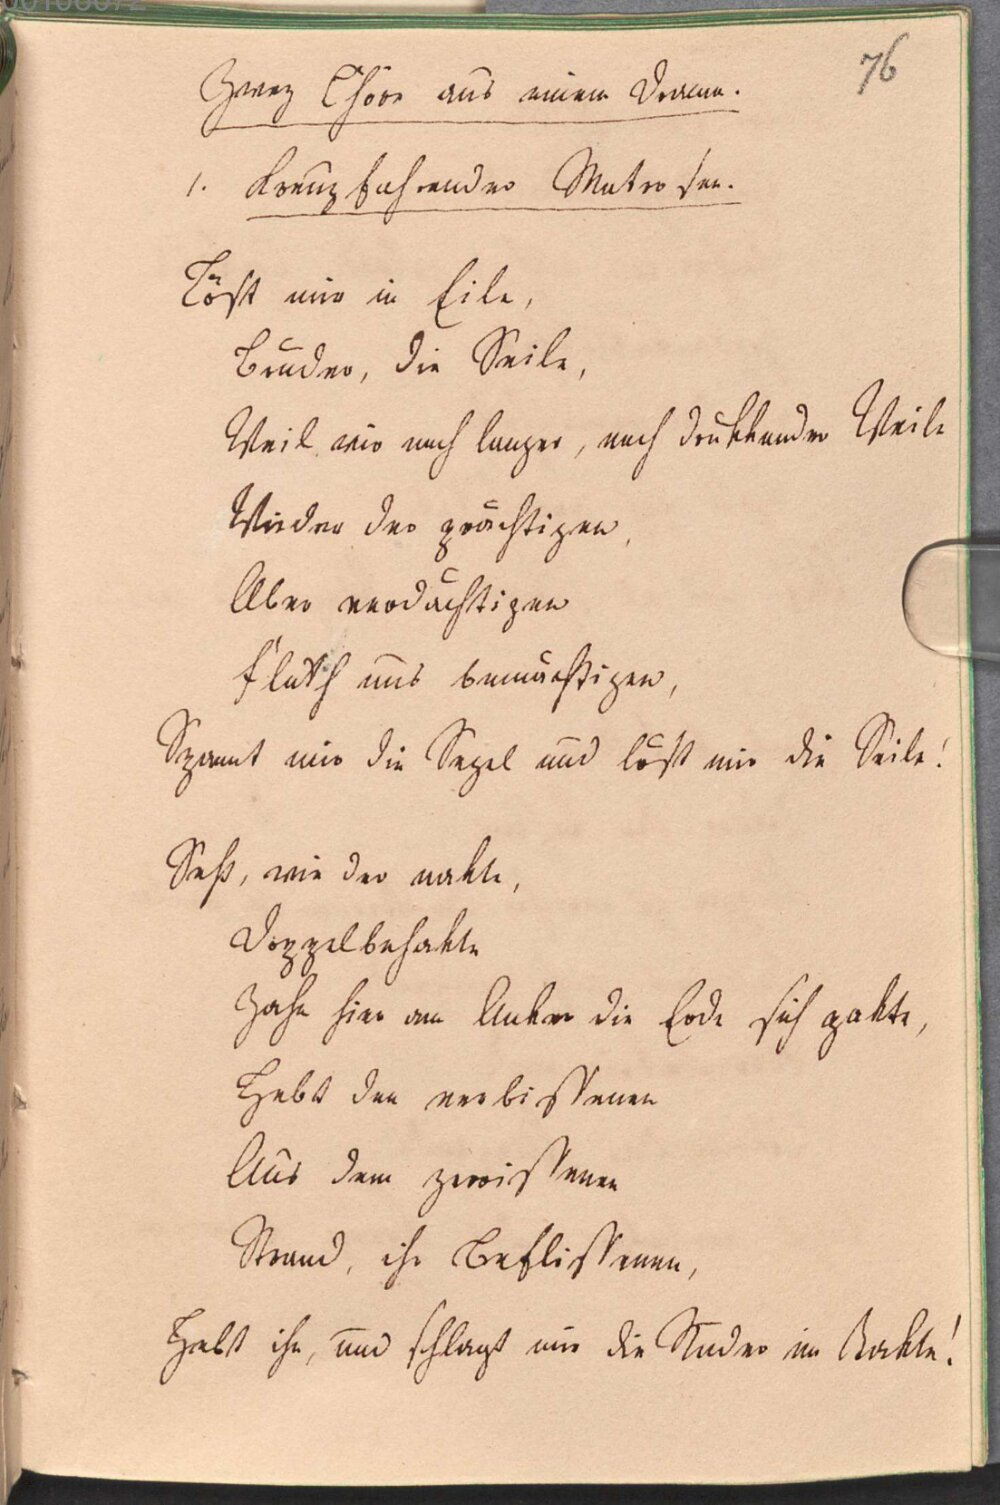 00106072
76
Zwey Chöre aus einem Drama.
1. Kreuzfahrender Matrosen.
Löst mir in Eile,
Brüder, die Seile,
Weil wir nach langer, nach drukkender Weile
Wieder der prächtigen,
Aber verdächtigen
Fluth uns bemächtigen,
Spannt mir die Segel und löst mir die Seile!
Seht, wie der nakte,
Doppelbehakte
Zahn hier am Anker die Erde sich pakte,
Hebt den verbissenen
Aus dem zerrissenen
Strand, ihr Beflissenen,
Hebt ihn, und schlagt mir die Ruder im Takte!